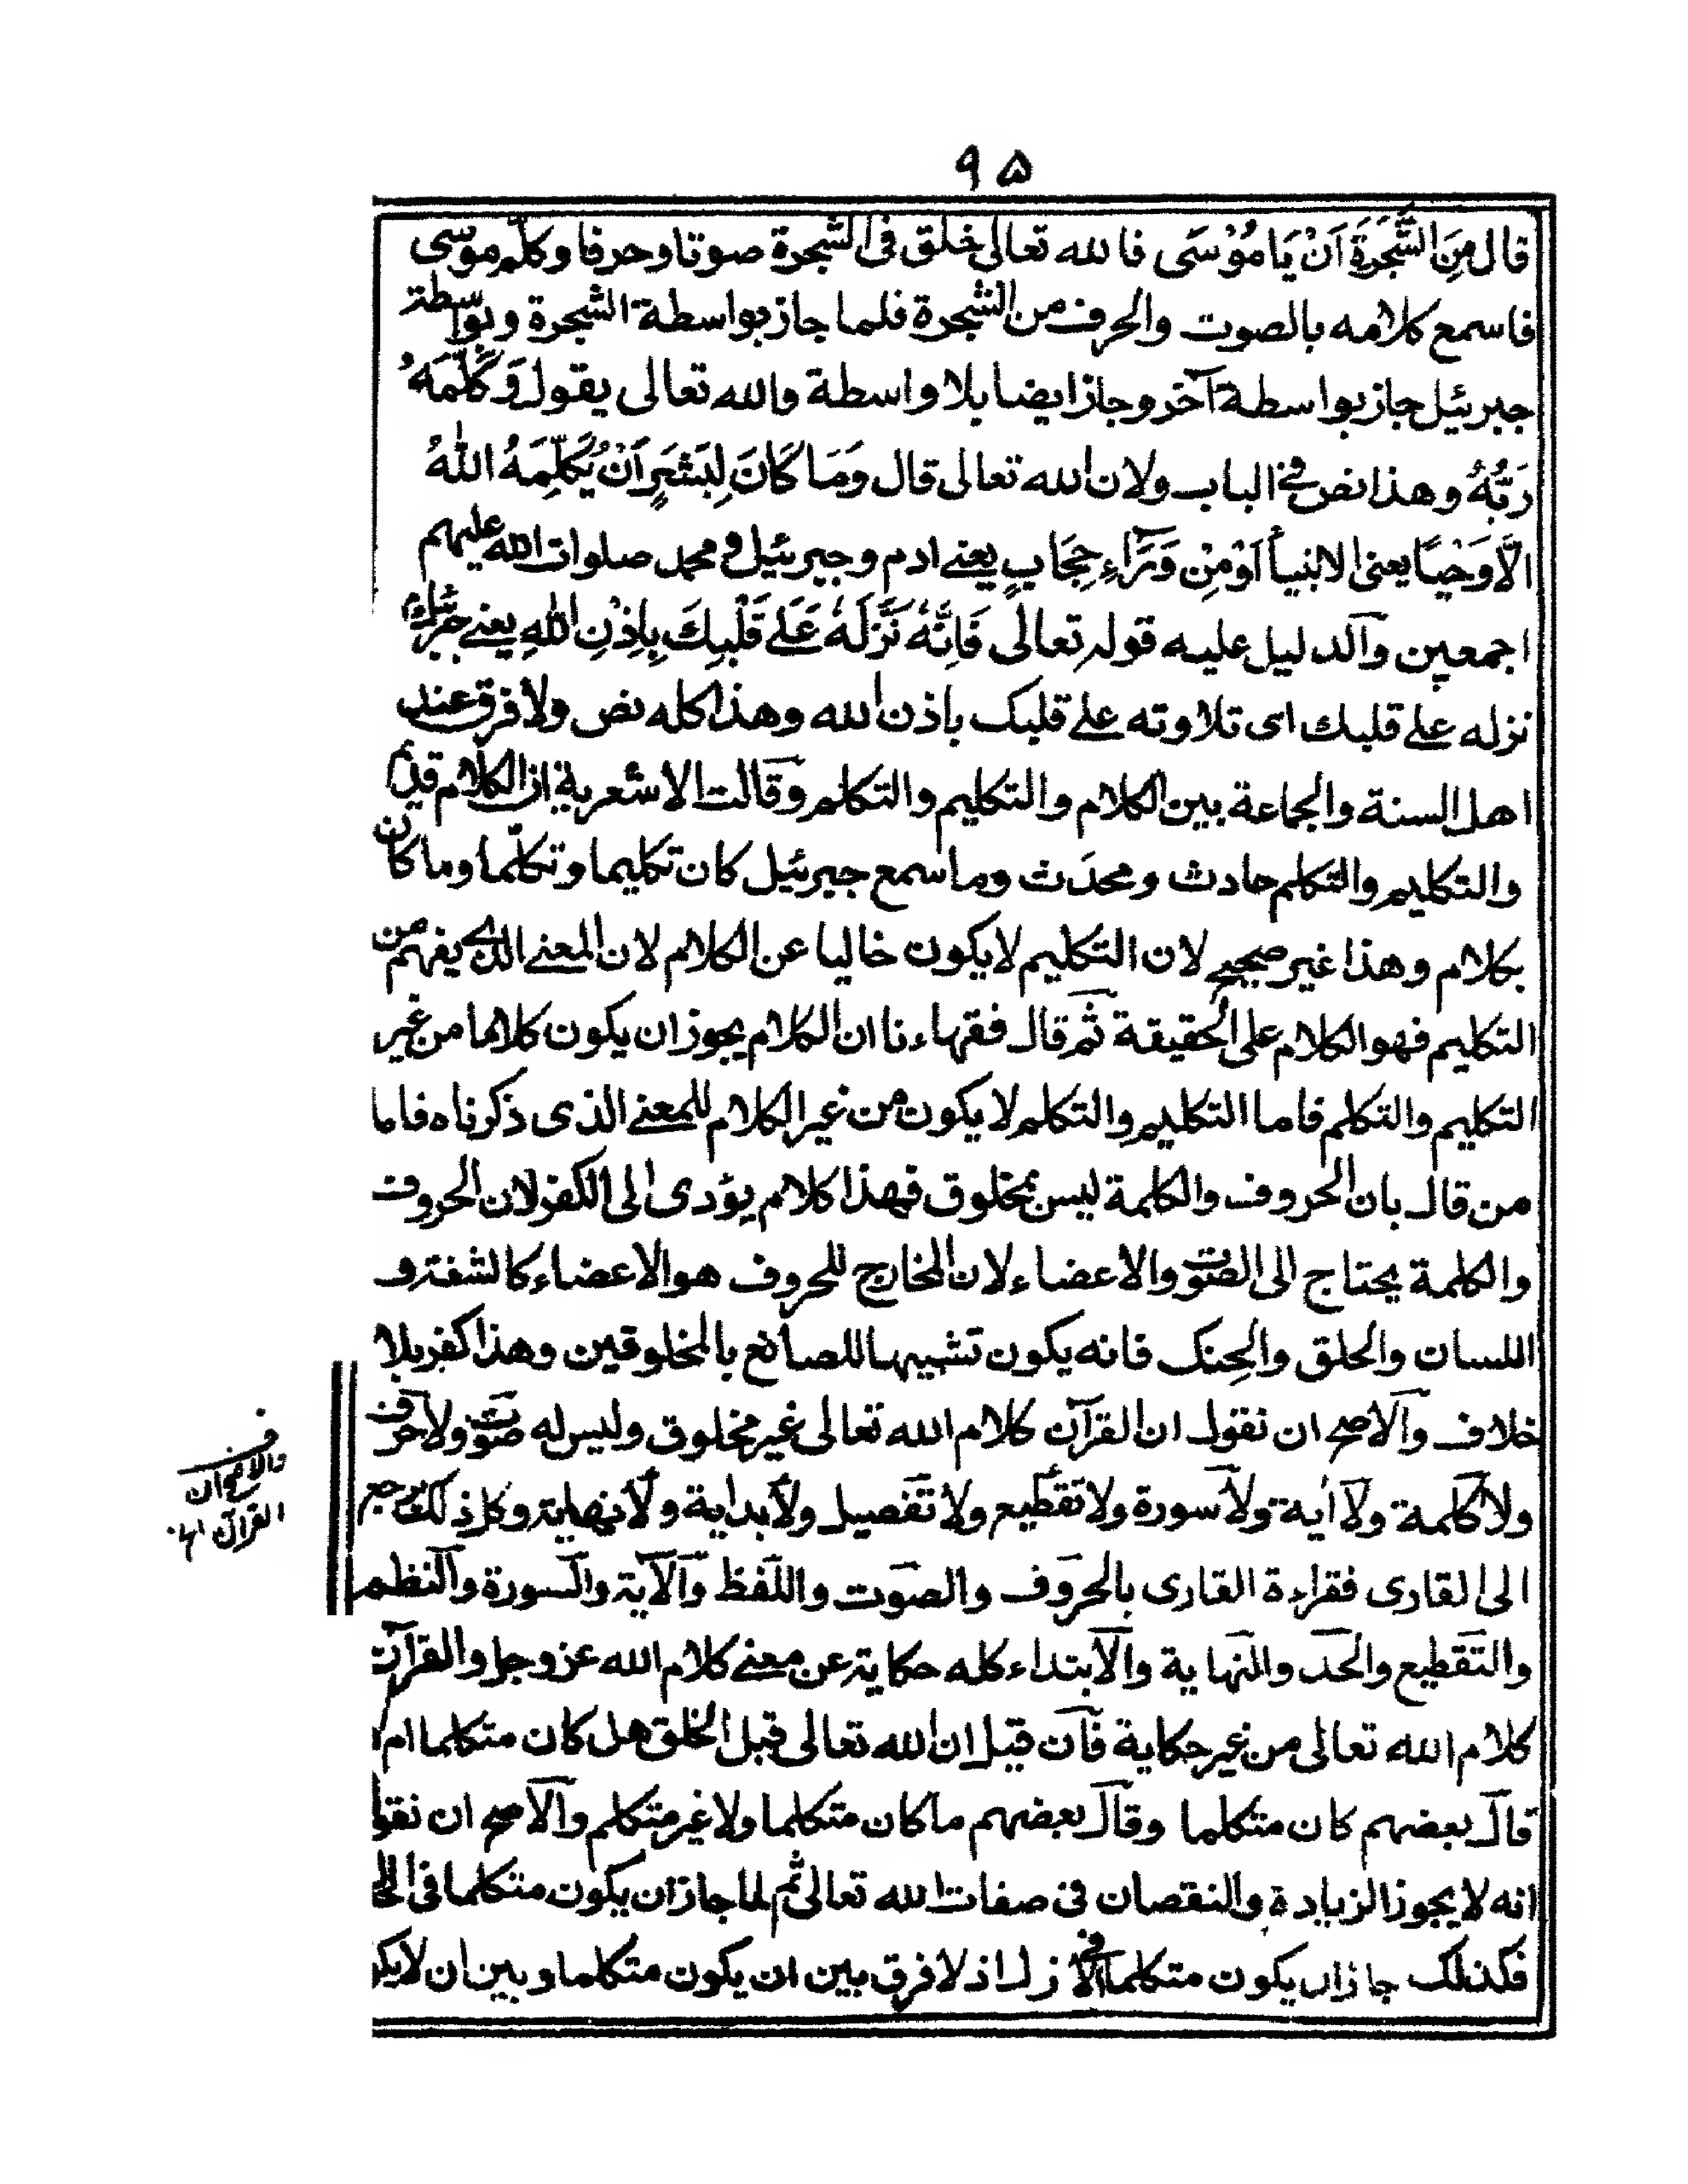 ۹۵
قال مِنَ الشَّجَرَةِ اَنْ يَا مُوْسَى فالله تعالى خلق فى الشجرة صوتا وحرفا وكلّم موسى
فاسمع كلامه بالصوت والحرف من الشجرة فلما جاز بواسطة الشجرة وبواسطة
جبرئيل جاز بواسطة آخر وجاز ايضا بلا واسطة والله تعالى يقول وَكَلَّمَهُ
رَبُّهُ وهذا نص فى الباب ولان الله تعالى قال وَمَا كَانَ لِبَشَرٍ اَنْ يُكَلِّمَهُ اللهُ
اِلَّا وَحْيًا يعنى الانبيأ اَوْ مِنْ وَرَآءِ حِجَابٍ يعنے ادم وجبرئيل و محمد صلوات الله عليهم
اجمعين والدليل عليه قوله تعالى فَاِنَّهٗ نَزَّلَهٗ عَلٰے قَلْبِكَ بِاِذْنِ اللهِ يعنے جبرئيل
نزله علے قلبك اى تلاوته علے قلبك باذن الله وهذا كله نص ولا فرق عند
اهل السنة والجماعة بين الكلام والتكليم والتكلم وقالت الاشعرية ان الكلام قديم
والتكليم والتكلم حادث ومحدَث وما سمع جبرئيل كان تكليما وتكلّما وما كان
بكلام وهذا غير صحيح لان التكليم لا يكون خاليا عن الكلام لان المعنے الذى يفهم من
التكليم فهو الكلام على الحقيقة ثم قال فقهاءنا ان الكلام يجوز ان يكون كلاما من غير
التكليم والتكلم فاما التكليم والتكلم لا يكون من غير الكلام للمعنے الذى ذكرناه فاما
من قال بان الحروف والكلمة ليس بمخلوق فهذا كلام يؤدى الى الكفر لان الحروف
والكلمة يحتاج الى الصوت والاعضاء لان المخارج للحروف هو الاعضاء كالشفة و
اللسان والحلق والحنك فانه يكون تشبيها للصانع بالمخلوقين وهذا كفر بلا
خلاف والاصح ان نقول ان القرآن كلام الله تعالى غير مخلوق وليس له صوت ولا حرف
ولا كلمة ولا أية ولا سورة ولا تقطيع ولا تفصيل ولا بداية ولا نهاية وكل ذلك يرجع
الى القارى فقراءة القارى بالحروف والصوت واللفظ والآية والسورة والنظم
والتقطيع والحد والنهاية والابتداء كله حكاية عن معنے كلام الله عز وجل والقرآن
كلام الله تعالى من غير حكاية فان قيل ان الله تعالى قبل الخلق هل كان متكلما ام
قال بعضهم كان متكلما وقال بعضهم ما كان متكلما ولا غير متكلم والاصح ان نقو
انه لا يجوز الزيادة والنقصان فى صفات الله تعالى ثم لما جاز ان يكون متكلما فى
فكذلك جاز ان يكون متكلما فى الازل اذ لا فرق بين ان يكون متكلما وبين ان لا يكو
ف
والاصح ان
القرآن